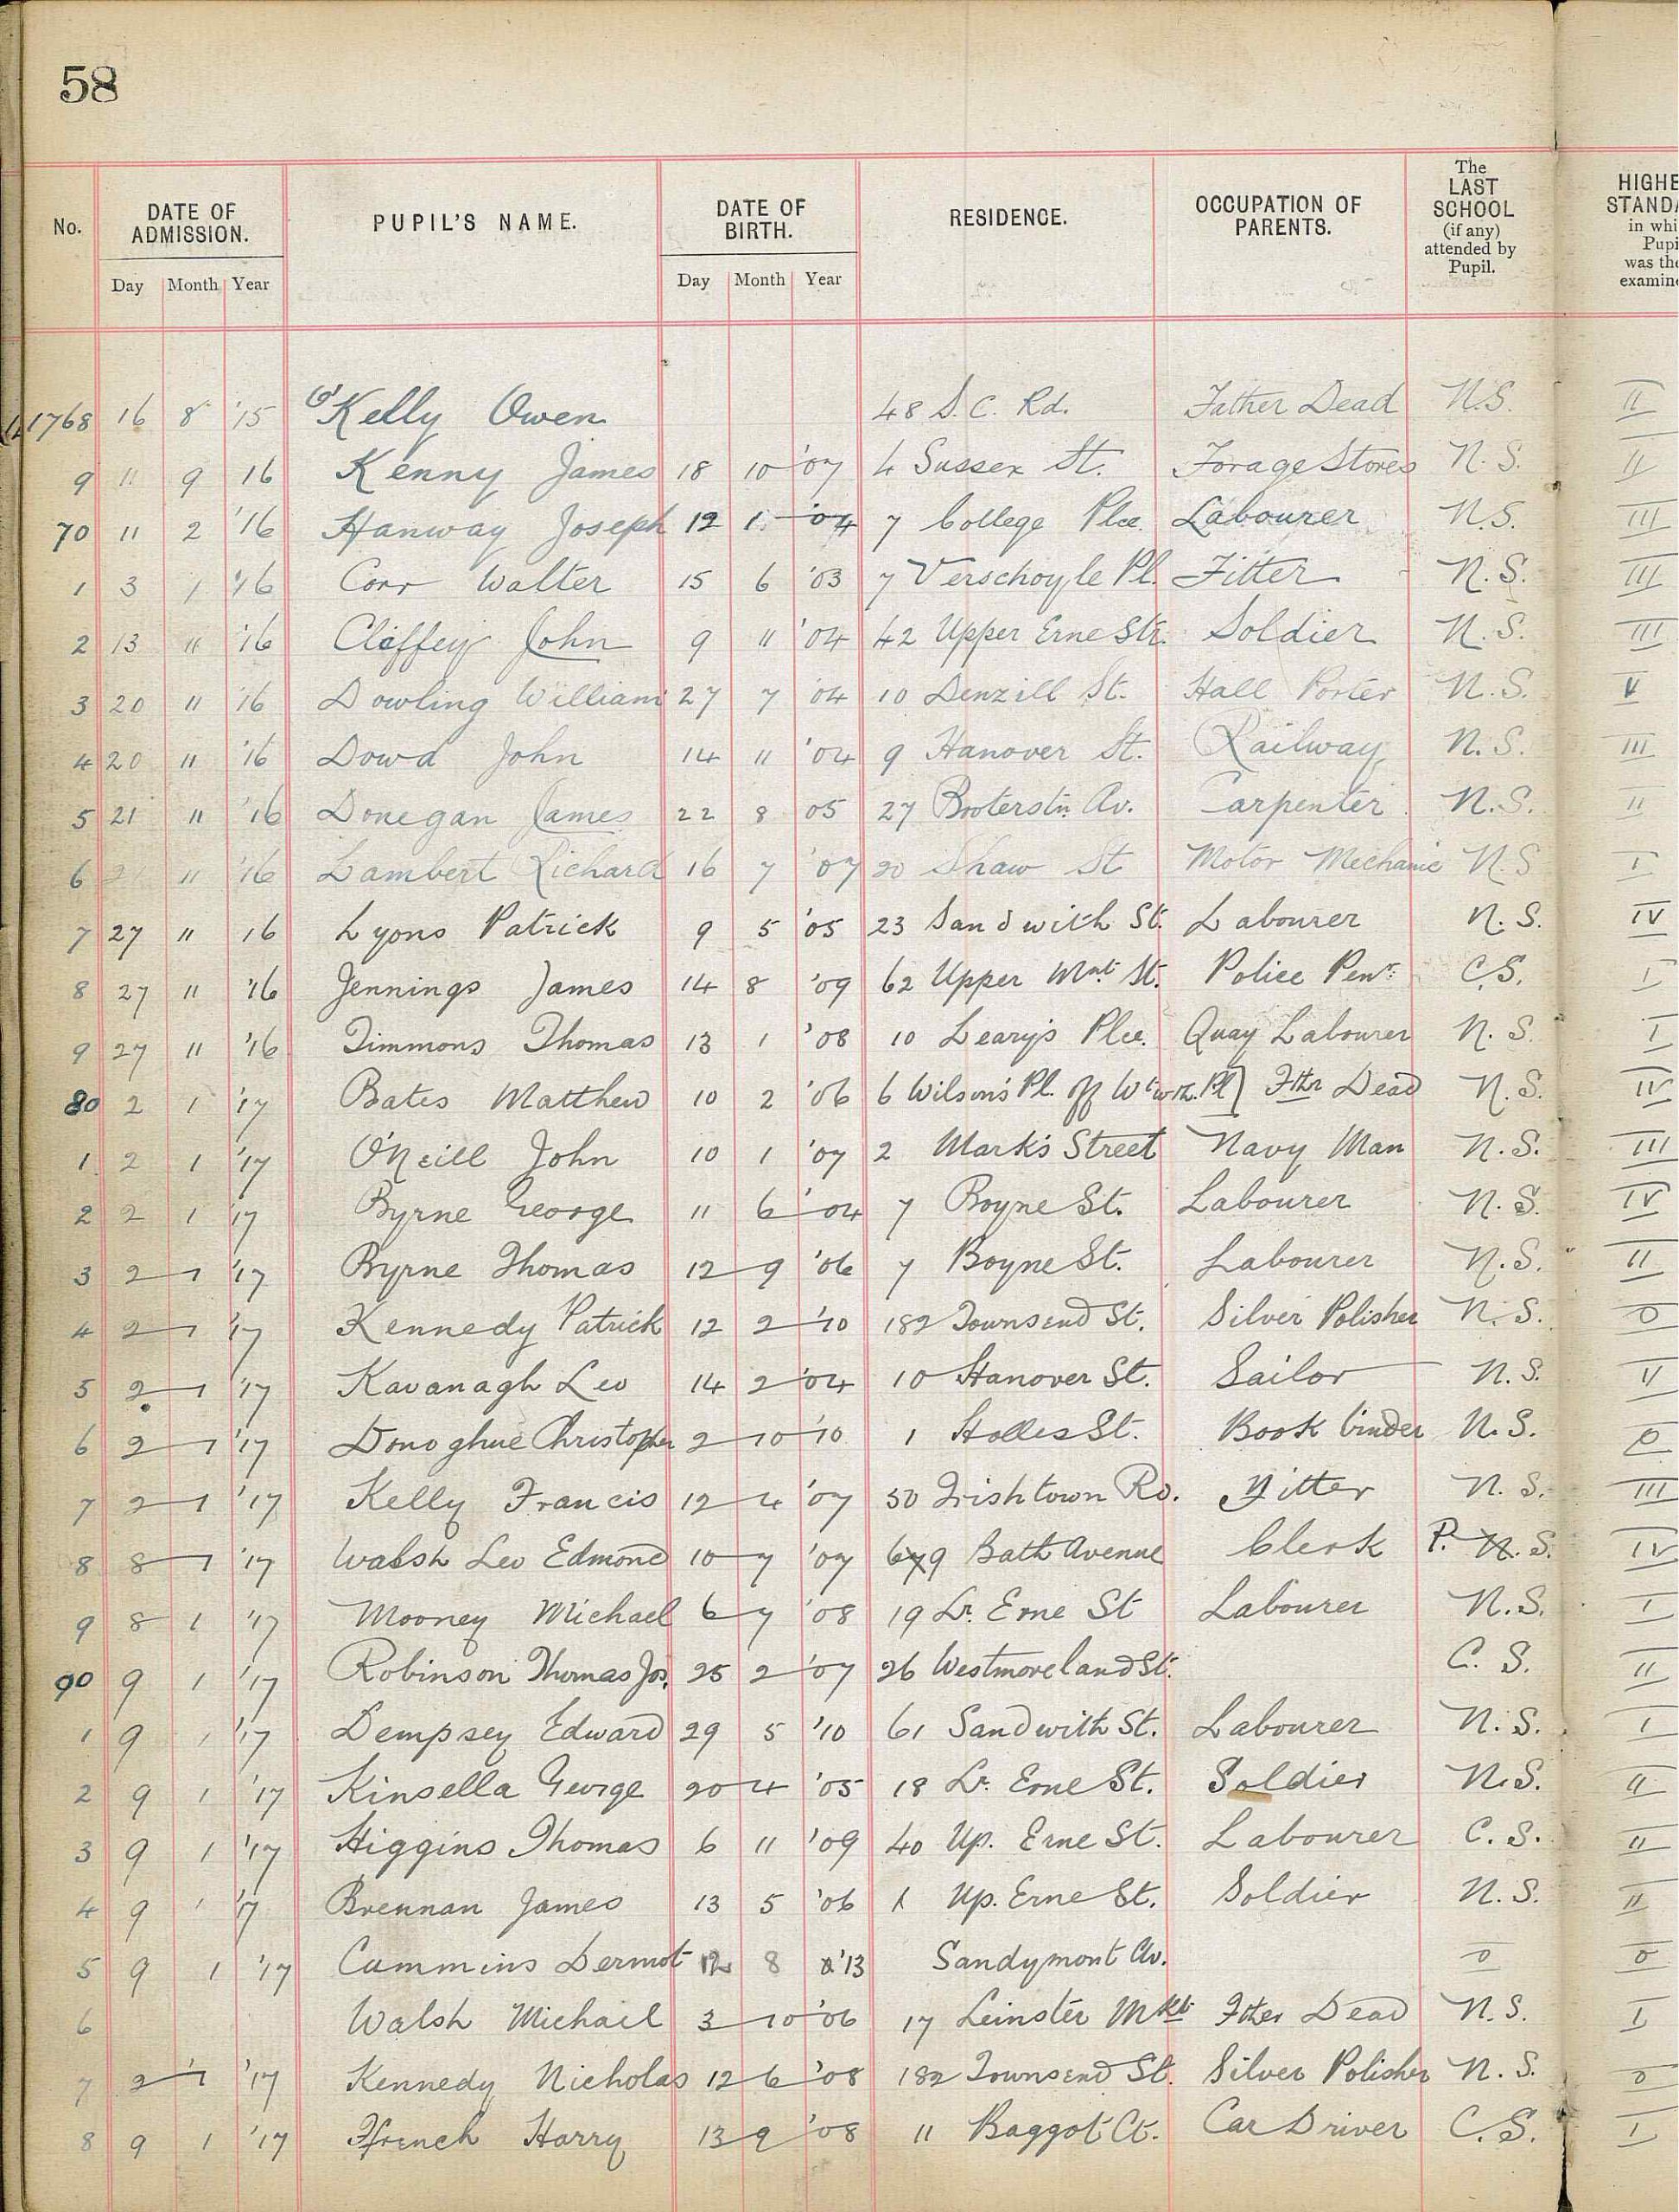 58
No. DATE OF ADMISSION. PUPIL'S NAME. DATE OF BIRTH. RESIDENCE. OCCUPATION OF PARENTS. The LAST SCHOOL (if any) attended by Pupil. HIGHE STANDA in whi Pupi was the examine
Day Month Year Day Month Year
1768 16 8 '15 Kelly Owen 48 S. C. Rd. Father Dead N.S. II
9 11 9 16 Kenny James 18 10 '07 4 Sussex St. Forage Stores N.S. II
70 11 2 '16 Hanway Joseph 12 1 '04 7 College Plce. Labourer N.S. III
1 3 1 '16 Corr Walter 15 6 '03 7 Verschoyle Pl. Fitter N.S. III
2 13 11 '16 Claffey John 9 11 '04 42 Upper Erne Str. Soldier N.S. III
3 20 11 '16 Dowling William 27 7 '04 10 Denzill St. Hall Porter N.S. V
4 20 11 '16 Dowd John 14 11 '04 9 Hanover St. Railway N.S. III
5 21 11 '16 Donegan James 22 8 05 27 Booterstn. Av. Carpenter N.S. II
6 21 11 '16 Lambert Richard 16 7 '07 20 Shaw St Motor Mechanic N.S I
7 27 11 16 Lyons Patrick 9 5 '05 23 Sandwith St. Labourer N.S. IV
8 27 11 '16 Jennings James 14 8 '09 62 Upper Mnt St. Police Penr. C.S. I
9 27 11 '16 Timmons Thomas 13 1 '08 10 Leary's Plce. Quay Labourer N.S. I
80 2 1 '17 Bates Matthew 10 2 '06 6 Wilson's Pl. off Wtwth. Pl] Fthr Dead N.S. IV
1 2 1 '17 O'Neill John 10 1 '07 2 Mark's Street Navy Man N.S. III
2 2 1 '17 Byrne George 11 6 '04 7 Boyne St. Labourer N.S. IV
3 2 1 '17 Byrne Thomas 12 9 '06 7 Boyne St. Labourer N.S. II
4 2 1 '17 Kennedy Patrick 12 2 '10 182 Townsend St. Silver Polisher N.S. 0
5 2 1 '17 Kavanagh Leo 14 2 '04 10 Hanover St. Sailor N.S. V
6 2 1 '17 Donoghue Christopher 2 10 '10 1 Holles St. Book binder N.S. 0
7 2 1 '17 Kelly Francis 12 4 '07 50 Irishtown Rd. Fitter N.S. III
8 8 1 '17 Walsh Leo Edmond 10 7 '07 679 Bath Avenue Clerk P. N.S. IV
9 8 1 '17 Mooney Michael 6 7 '08 19 Lr. Erne St Labourer N.S. I
90 9 1 '17 Robinson Thomas Jos. 25 2 '07 26 Westmoreland St. C.S. II
1 9 1 '17 Dempsey Edward 29 5 '10 61 Sandwith St. Labourer N.S. I
2 9 1 '17 Kinsella George 20 4 '05 18 Lr. Erne St. Soldier N.S. II
3 9 1 '17 Higgins Thomas 6 11 '09 40 Up. Erne St. Labourer C.S. II
4 9 1 '17 Brennan James 13 5 '06 1 Up. Erne St. Soldier N.S. II
5 9 1 '17 Cummins Dermot 12 8 '13 Sandymont Av. 0 0
6 Walsh Michael 3 10 '06 17 Leinster Mkt Fther Dead N.S. I
7 2 1 '17 Kennedy Nicholas 12 6 '08 182 Townsend St. Silver Polisher N.S. 0
8 9 1 '17 Ffrench Harry 13 9 '08 11 Baggot Ct. Car Driver C.S. I